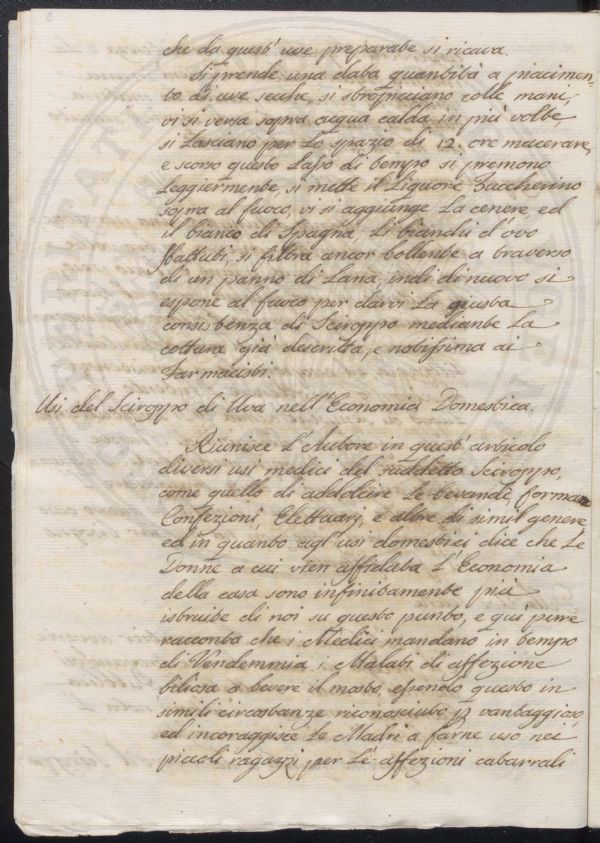 che da quest' uve preparate si ricava.
Si prende una data quantità a piacimen-
to di uve secche, si stropicciano colle mani,
vi si versa sopra acqua calda in più volte,
si lasciano per lo spazio di 12. ore macerare,
e scorso questo lasso di tempo si premono
leggiermente, si mette il liquore Zuccherino
sopra al fuoco, vi si aggiunge la cenere, ed
il bianco di Spagna, li bianchi d'ovo
sbattuti, si filtra ancor bollente a traverso
di un panno di lana, indi di nuovo si
espone al fuoco per darvi la giusta
consistenza di Sciroppo mediante la
cottura già descritta, e notissima ai
Farmacisti.
Usi del Sciroppo di Uva nell'Economia Domestica.
Riunisce l'Autore in quest' articolo
diversi usi medici del suddetto Sciroppo,
come quello di addolcire le bevande, formare
Confezioni, Elettuarj, e altre di simil genere
ed in quanto agl' usi domestici dice che le
Donne a cui vien affidata l'Economia
della casa sono infinitamente più
istruite di noi su questo punto, e quì pure
racconta che i Medici mandano in tempo
di Vendemmia i Malati di affezione
biliosa a bevere il mosto, essendo questo in
simili circostanze riconosciuto p vantaggioso
ed incoraggisce le Madri a farne uso nei
piccoli ragazzi per le affezioni catarrali